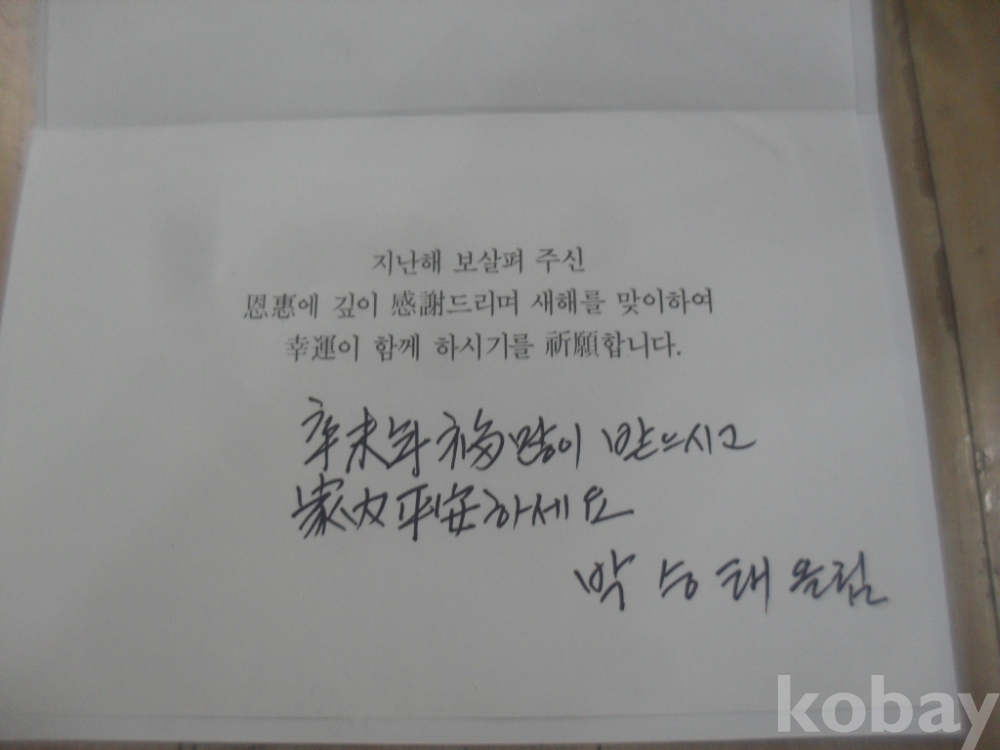 지난해 보살펴 주신
恩惠에 깊이 感謝드리며 새해를 맞이하여
幸運이 함께 하시기를 祈願합니다.
辛未年 福 많이 받으시고
家內平安하세요
박승태 올림
kobay